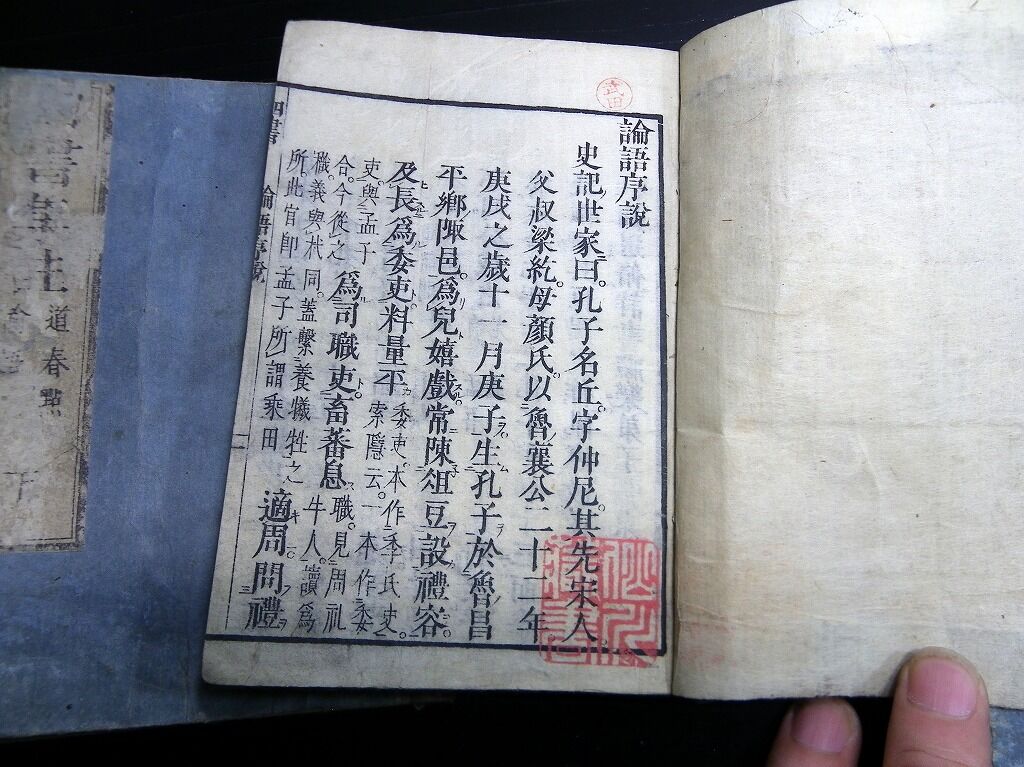 武田
論語序說
史記世家曰。孔子名丘。字仲尼。其先宋人。
父叔梁紇。母顏氏。以魯襄公二十二年
庚戌之歲十一月庚子生孔子於魯昌
平鄉陬邑。爲兒嬉戲常陳俎豆設禮容。
及長爲委吏料量平
委吏。本作季氏史。
索隱云。一本作委
吏。與孟子
合。今從之
爲司職吏。畜蕃息
職。見周礼
牛人。讀爲
樴。義與杙同。蓋繫養犧牲之
所。此官即孟子所謂乘田
適周。問禮
論語序說
道春點